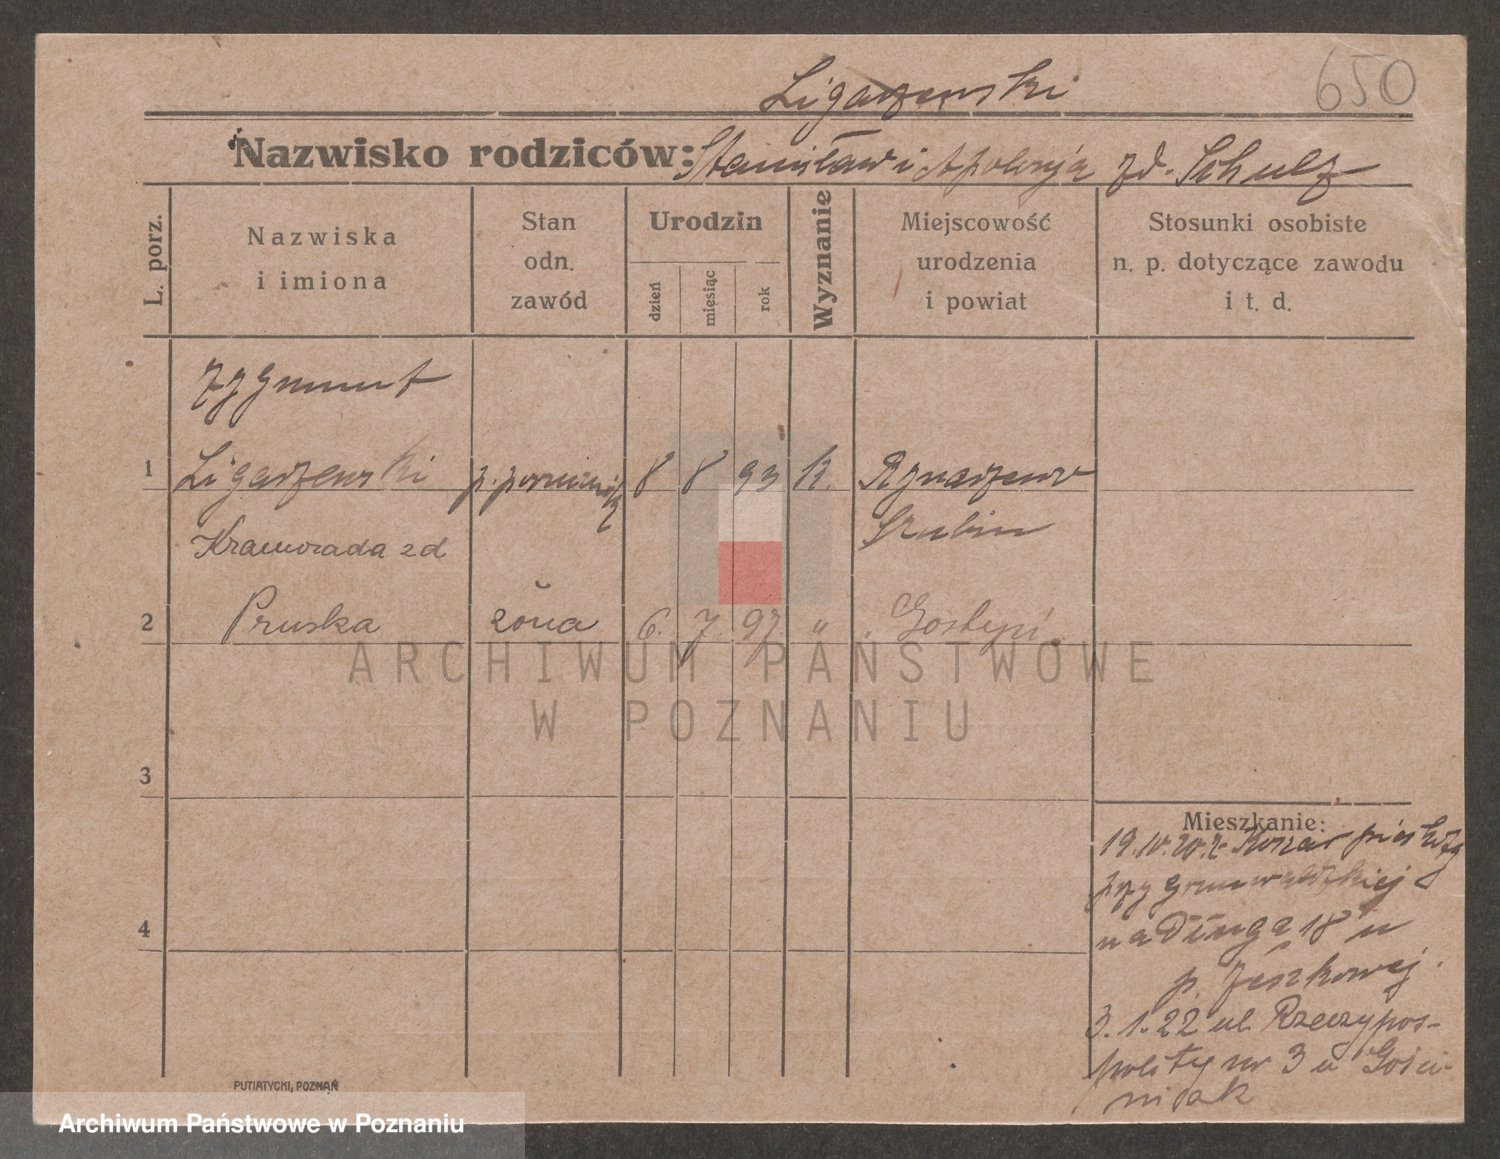 650
Ligarzewski
Nazwisko rodziców: Stanisław i Apolonja zd. Schulz
L. porz.
Nazwiska
i imiona
Stan
odn.
zawód
Urodzin
dzień
miesiąc
rok
Wyznanie
Miejscowość
urodzenia
i powiat
Stosunki osobiste
n. p. dotyczące zawodu
i t. d.
Zygmunt
1 Ligarzewski 8 8 93 K. Rynarzewo
Szubin
zd
2 Pruska żona 6. 7. 97. "
ARCHIWUM PAŃSTWOWE
W POZNANIU
3
4
Mieszkanie:
19.10.20. z Koszar
przy Grunwaldzkiej
na Długa 18 u
p.
3.1.22 ul. Rzeczypos-
polity nr 3 u Gości-
niak
PUTIATYCKI, POZNAŃ
Archiwum Państwowe w Poznaniu